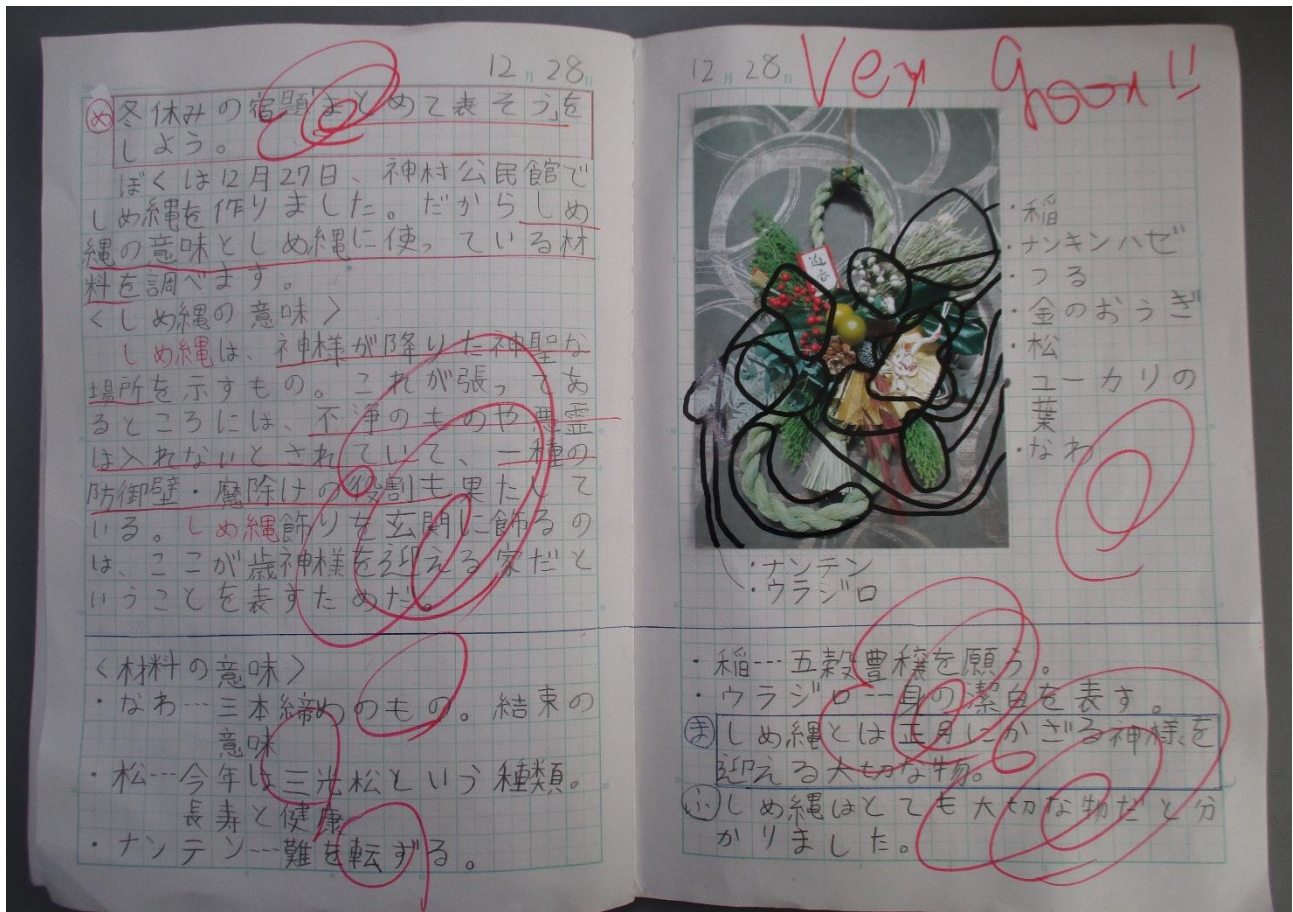 12月28日
め 冬休みの宿題「まとめて表そう」を
しよう。
ぼくは12月27日、神村公民館で
しめ縄を作りました。だからしめ
縄の意味としめ縄に使っている材
料を調べます。
〈しめ縄の意味〉
しめ縄は、神様が降りた神聖な
場所を示すもの。これが張ってあ
るところには、不浄のものや悪霊
は入れないとされていて、一種の
防御壁・魔除けの役割も果たして
いる。しめ縄飾りを玄関に飾るの
は、ここが歳神様を迎える家だと
いうことを表すためだ。
〈材料の意味〉
・なわ…三本締めのもの。結束の
意味
・松…今年は三光松という種類。
長寿と健康
・ナンテン…難を転ずる。
12月28日
Very Good!!
迎春
・稲
・ナンキンハゼ
・つる
・金のおうぎ
・松
ユーカリの
葉
・なわ
・ナンテン
・ウラジロ
・稲…五穀豊穣を願う。
・ウラジロー身の潔白を表す。
ま しめ縄とは正月にかざる神様を
迎える大切な物。
ふ しめ縄はとても大切な物だと分
かりました。